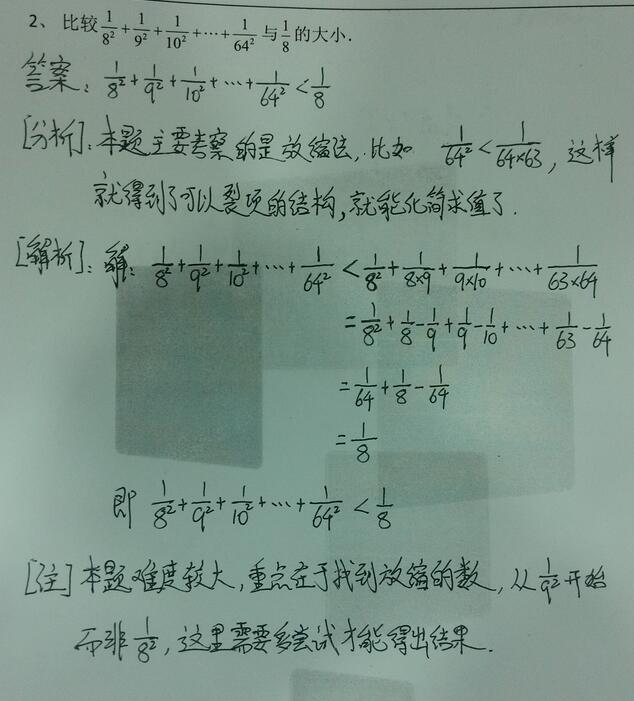 2、比较 1/8² + 1/9² + 1/10² + ··· + 1/64² 与 1/8 的大小.
答案: 1/8² + 1/9² + 1/10² + ··· + 1/64² < 1/8
[分析]: 本题主要考察的是放缩法, 比如 1/64² < 1/64×63, 这样
就得到了可以裂项的结构, 就能化简求值了.
[解析]: 解: 1/8² + 1/9² + 1/10² + ··· + 1/64² < 1/8² + 1/8×9 + 1/9×10 + ··· + 1/63×64
= 1/8² + 1/8 - 1/9 + 1/9 - 1/10 + ··· + 1/63 - 1/64
= 1/64 + 1/8 - 1/64
= 1/8
即 1/8² + 1/9² + 1/10² + ··· + 1/64² < 1/8
[注] 本题难度较大, 重点在于找到放缩的数, 从 1/9² 开始
而非 1/8², 这里需要多尝试才能得出结果.